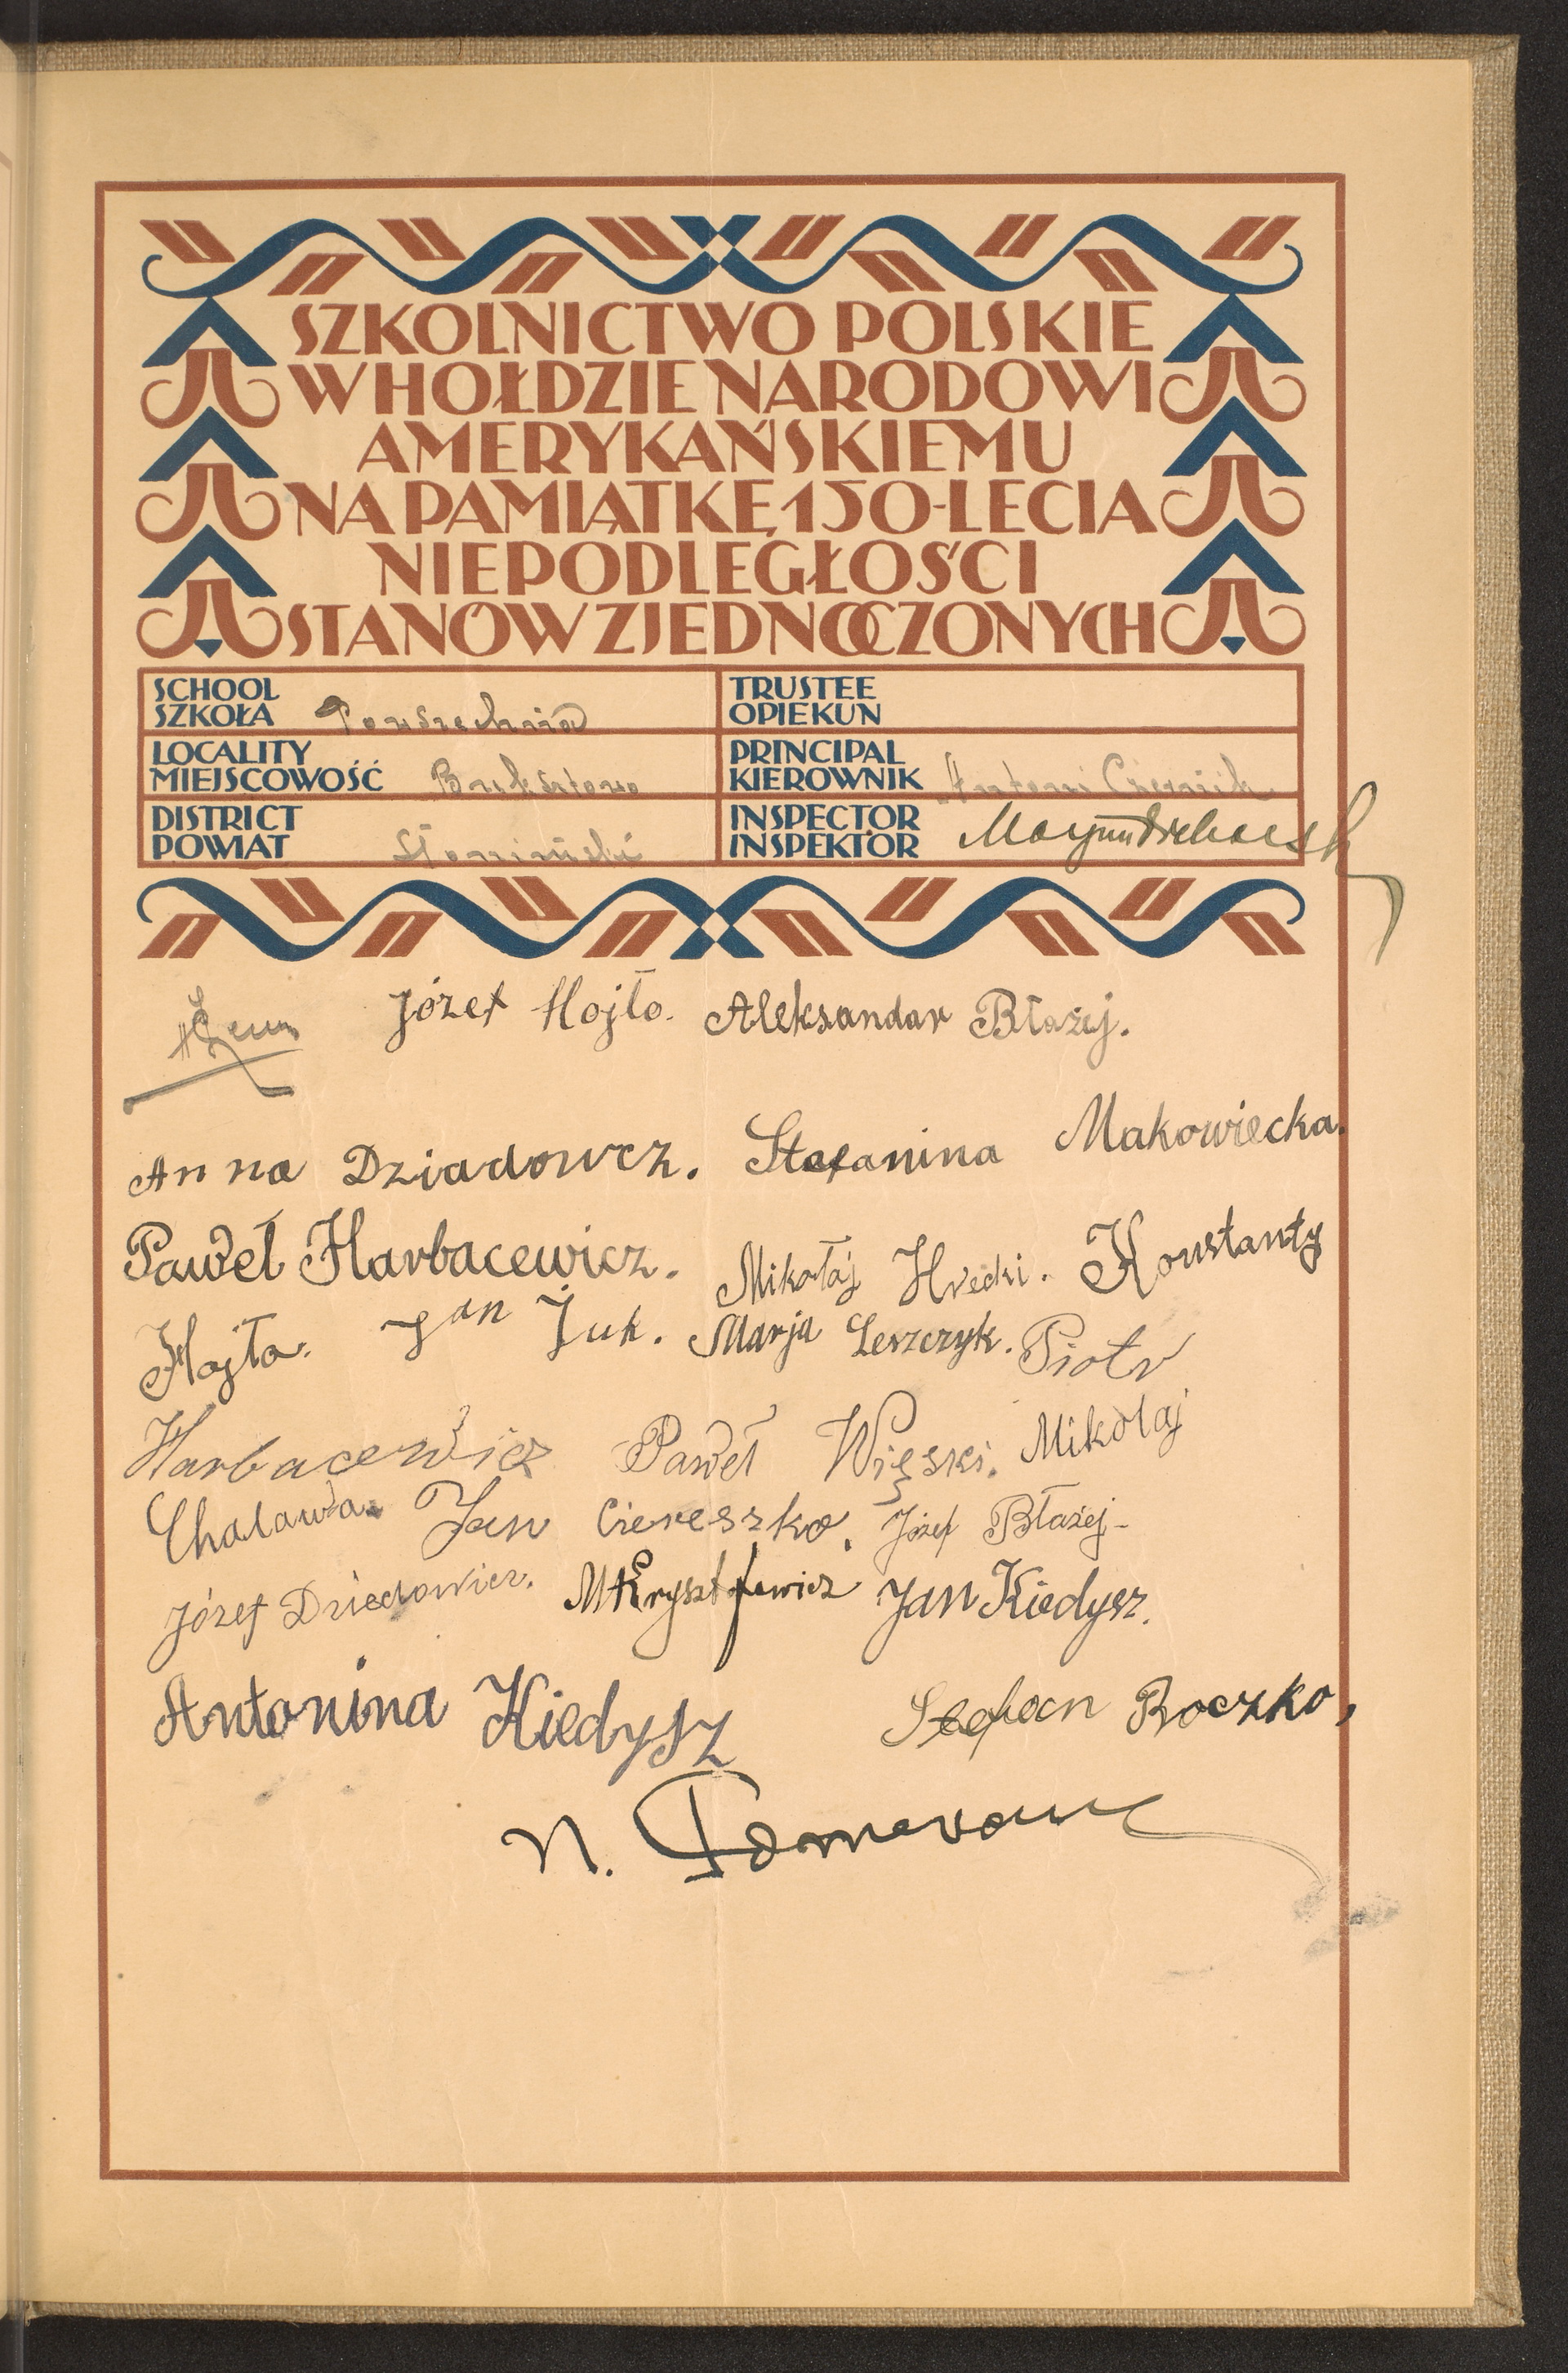 SZKOLNICTWO POLSKIE
W HOŁDZIE NARODOWI
AMERYKAŃSKIEMU
NA PAMIĄTKĘ 150-LECIA
NIEPODLEGŁOŚCI
STANÓW ZJEDNOCZONYCH
SCHOOL
SZKOŁA Powszechna
TRUSTEE
OPIEKUN
LOCALITY
MIEJSCOWOŚĆ
PRINCIPAL
KIEROWNIK Antoni
DISTRICT
POWIAT Słonimski
INSPECTOR
INSPEKTOR
Józef Hojło. Aleksandar Błażej.
Anna Dziadowcz. Stefanina Makowiecka.
Paweł Harbacewicz. Mikołaj Hrecki. Konstanty
Hojło. Jan Żuk. Marja Leszczyk. Piotr
Harbacewicz Paweł Więski. Mikołaj
Chaława. Jan Ciereszko. Józef Błażej-
Józef Dziedowicz. MKrysztofowicz Jan Kiedysz.
Antonina Kiedysz Stefan Boczko,
N.